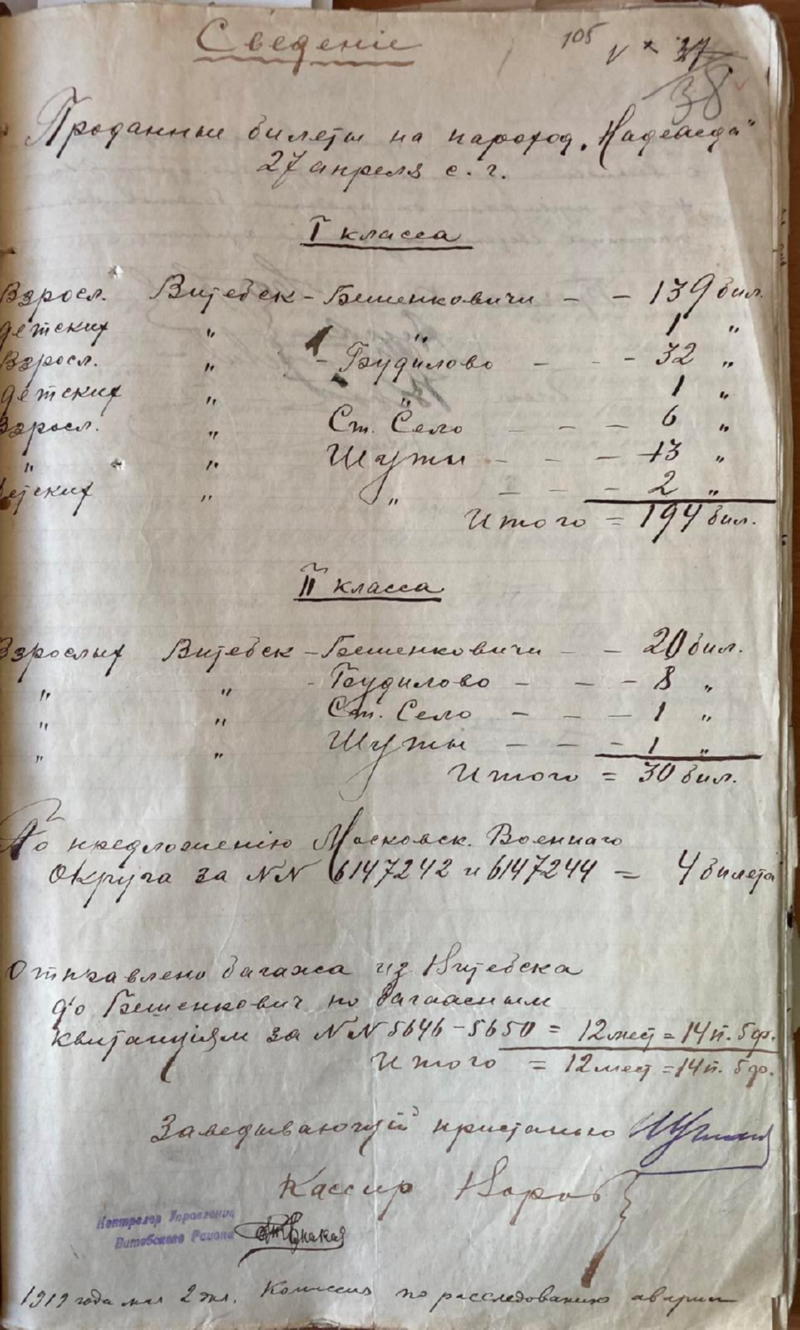 Сведенiе
105 V × 37
38
Проданные билеты на пароход „Надежда"
27 апреля с. г.
I класса
Взросл. Витебск - Бешенковичи - - 139 бил.
детских „ „ 1 „
Взросл. „ - Будилово - - - 32 „
детских „ „ 1 „
Взросл. „ Ст. Село - - - 6 „
„ „ Шуты - - - 13 „
детских „ „ - - - 2 „
Итого = 194 бил.
II класса
Взрослых Витебск - Бешенковичи - - 20 бил.
„ „ - Будилово - - - 8 „
„ „ Ст. Село - - - 1 „
„ „ Шуты - - - 1 „
Итого = 30 бил.
По предложенiю Московск. Военнаго
Округа за NN 6147242 и 6147244 = 4 билета
Отправлено багажа из Витебска
до Бешенкович по багажным
квитанцiям за NN 5646-5650 = 12 мест = 14 п. 5 ф.
Итого = 12 мест = 14 п. 5 ф.
Заведывающiй пристанью
Кассир
Контролер Управления
Витебского Района
1919 года мая 2 дня. Комиссия по расследованию аварии